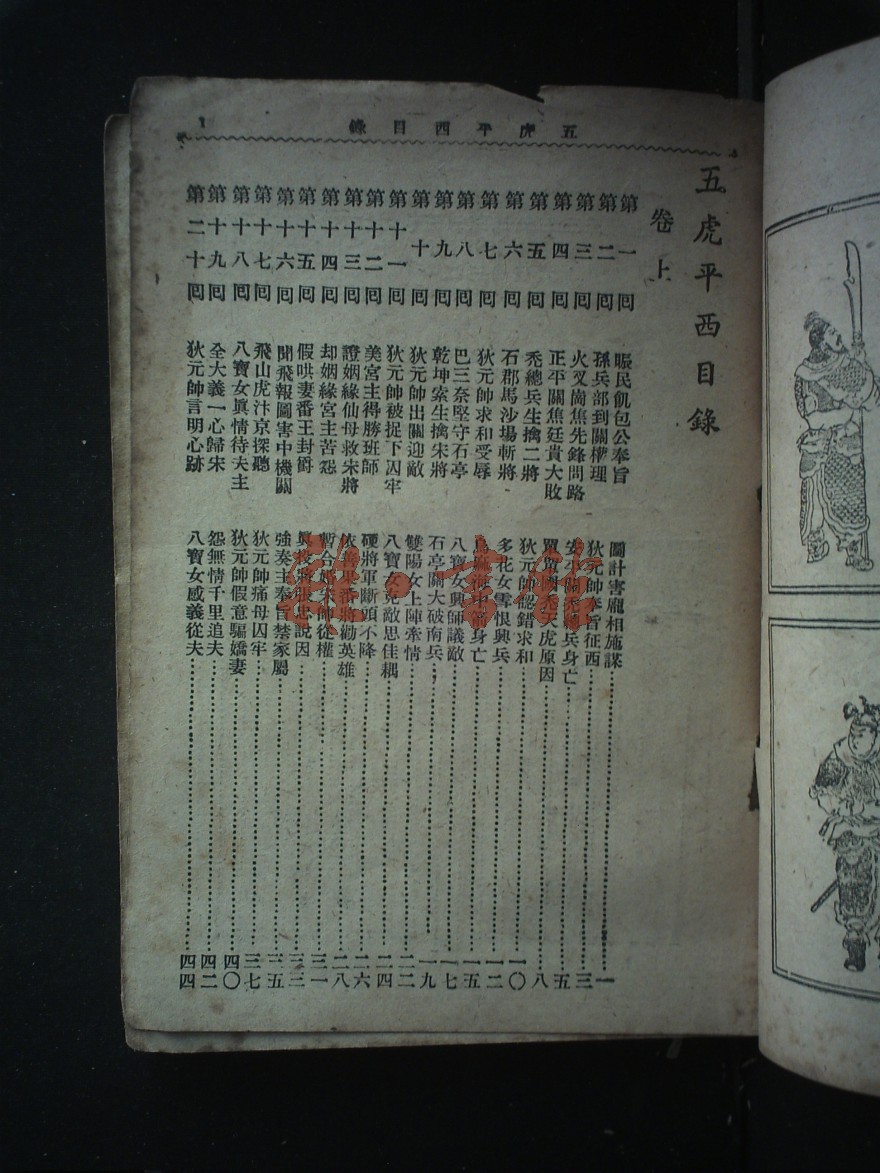 五虎平西目錄 1
五虎平西目錄
卷上
第一回 賑民飢包公奉旨 圖計害龐相施謀 一
第二回 孫兵部到關權理 狄元帥奉旨征西 三
第三回 火叉崗焦先鋒問路 安平關禿總兵身亡 五
第四回 正平關焦廷貴大敗 單單國 天虎原因 八
第五回 禿總兵生擒二將 狄元帥認錯求和 一〇
第六回 石郡馬沙場斬將 多花女雪恨興兵 一二
第七回 狄元帥求和受辱 烏麻海 身亡 一五
第八回 巴三奈堅守石亭 八寶女興師議敵 一七
第九回 乾坤索生擒宋將 石亭關大破南兵 一九
第十回 狄元帥出關迎敵 雙陽女上陣牽情 二二
第十一回 狄元帥被捉下囚牢 八寶女見敵思佳耦 二四
第十二回 美宮主得勝班師 硬將軍斷頭不降 二六
第十三回 證姻緣仙母救宋將 依善果番將勸英雄 二八
第十四回 却姻緣宮主苦怨 暫合婚宋帥從權 三一
第十五回 假哄妻番王封爵 眞投 張忠說因 三三
第十六回 聞飛報圖害中機關 強奏主奉旨禁家屬 三五
第十七回 飛山虎汴京探聽 狄元帥痛母囚牢 三七
第十八回 八寶女眞情待夫主 狄元帥假意騙嬌妻 四〇
第十九回 全大義一心歸宋 怨無情千里追夫 四二
第二十回 狄元帥言明心跡 八寶女感義從夫 四四